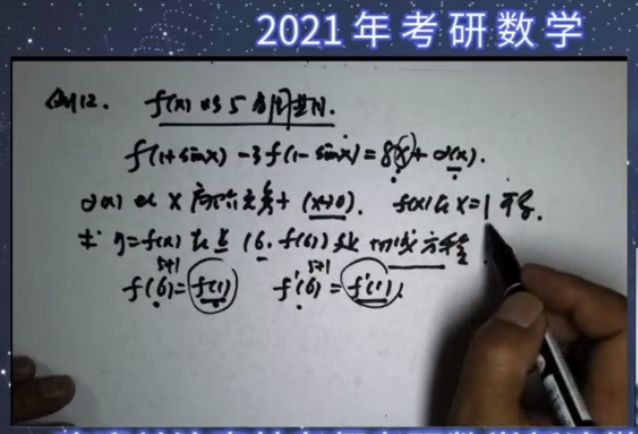 2021年考研数学
例12. f(x)以5为周期.
f(1+sinx)-3f(1-sinx)=8x+α(x).
α(x) 比 x 高阶无穷小 (x→0). f(x)在x=1可导.
求 y=f(x) 在点 (6, f(6))处 切线方程
5+1 5+1
f(6)=f(1) f'(6)=f'(1).